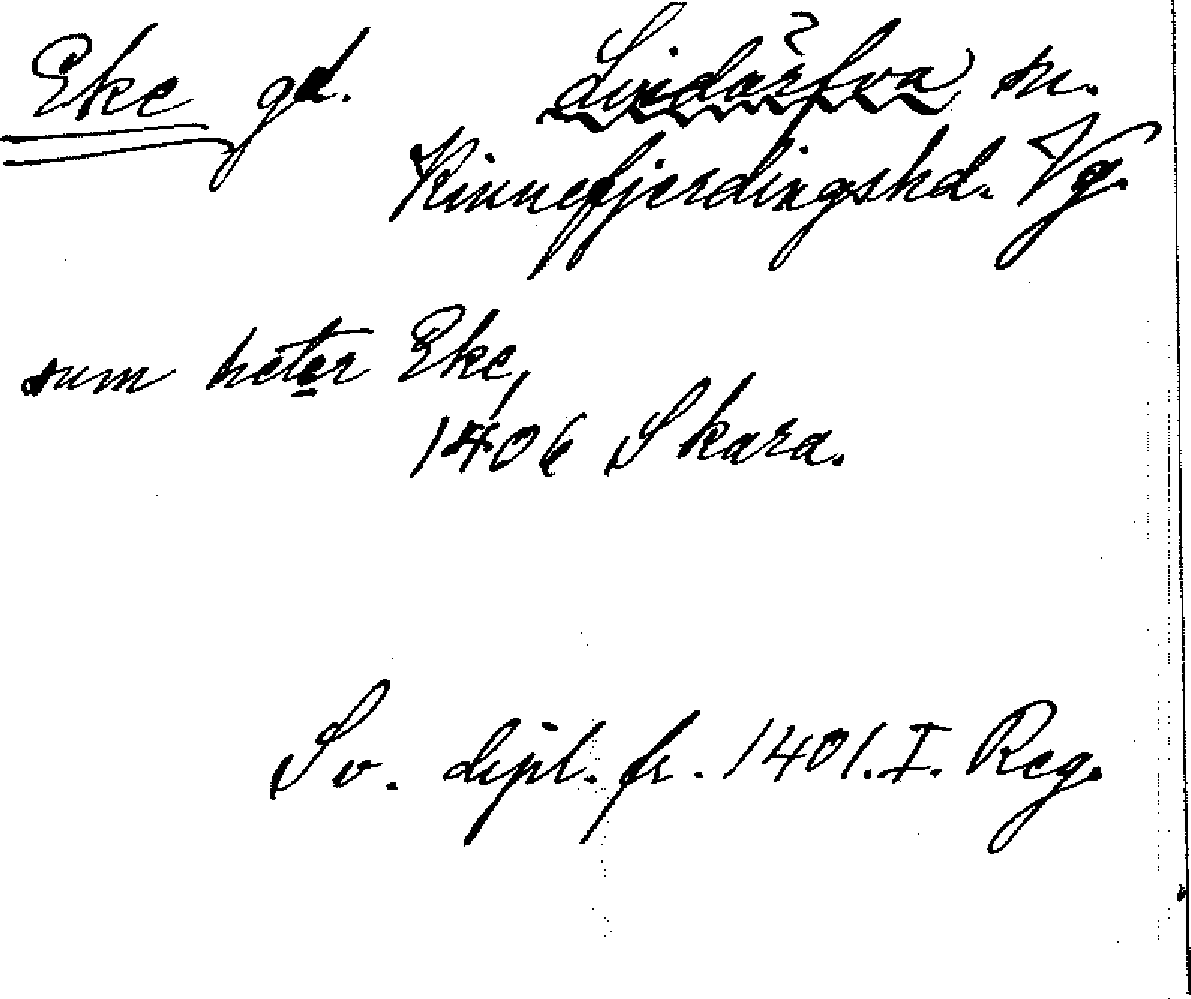 Eke gd. Lindärfva sn.
Kinnefjerdingshd. Vg.
sum heter Eke,
1406 Skara.
Sv. dipl. fr. 1401. I. Reg.